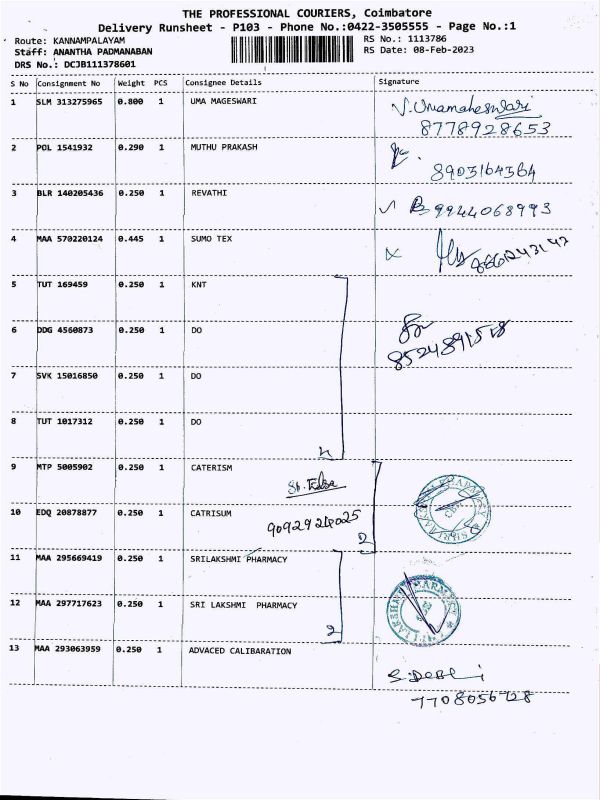 THE PROFESSIONAL COURIERS, Coimbatore
Delivery Runsheet - P103 - Phone No.:0422-3505555 - Page No.:1
Route: KANNAMPALAYAM RS No.: 1113786
Staff: ANANTHA PADMANABAN RS Date: 08-Feb-2023
DRS No.: DCJB111378601
S No Consignment No Weight PCS Consignee Details Signature
1 SLM 313275965 0.800 1 UMA MAGESWARI V.Umamaheswari
8778928653
2 POL 1541932 0.290 1 MUTHU PRAKASH
8903164364
3 BLR 140205436 0.250 1 REVATHI
9944068993
4 MAA 570220124 0.445 1 SUMO TEX
5 TUT 169459 0.250 1 KNT
6 DDG 4560873 0.250 1 DO
7 SVK 15016850 0.250 1 DO
8 TUT 1017312 0.250 1 DO
4
9 MTP 5005902 0.250 1 CATERISM
10 EDQ 20878877 0.250 1 CATRISUM
2
11 MAA 295669419 0.250 1 SRILAKSHMI PHARMACY
12 MAA 297717623 0.250 1 SRI LAKSHMI PHARMACY
2
13 MAA 293063959 0.250 1 ADVACED CALIBARATION
7708056728